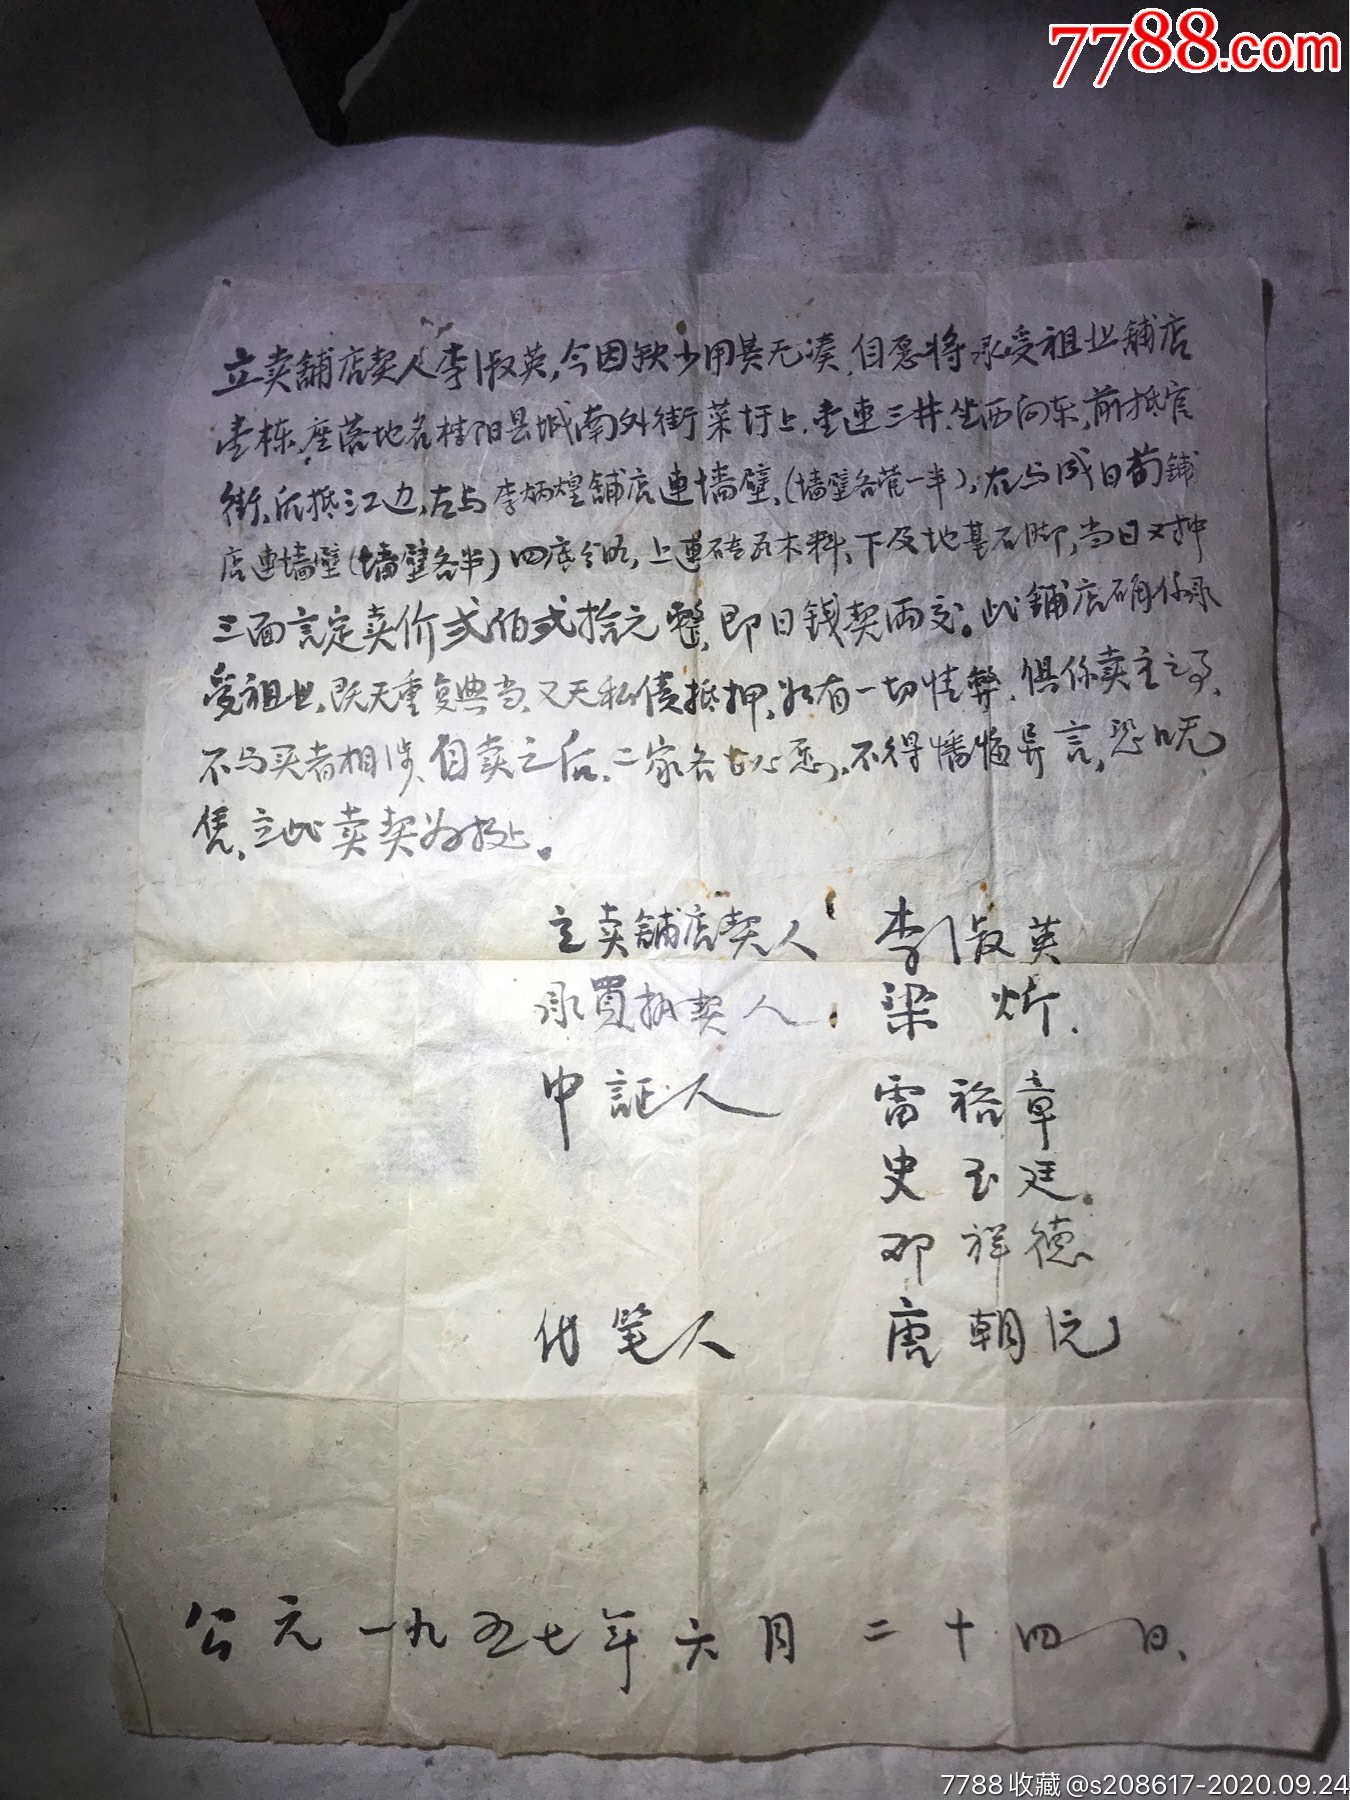 7788.com
立卖舖店契人李淑英,今因缺少用其无凑,自愿将承受祖业舖店
壹栋,座落地名桂阳县城南外街菜圩上,壹连三井,坐西向东,前抵官
街,后抵江边,左与李炳煌舖店連墙壁,(墙壁各管一半),右与成日荀舖
店連墙壁(墙壁各半)四底分明,上連砖瓦木料,下及地基石脚,当日对中
三面言定卖价弍佰弍拾元整,即日钱契两交。此舖店确係承
受祖业,既无重复典当,又无私债抵押,如有一切情弊,俱係卖主之事,
不与买者相涉,自卖之后,二家各甘心愿,不得憣悔异言,恐口无
凭,立此卖契为据。
立卖舖店契人 李淑英
承買执契人 梁炘
中証人 雷裕章
史玉廷
邓祥德
代笔人 唐朝元
公元一九五七年六月二十四日
7788收藏@s208617-2020.09.24